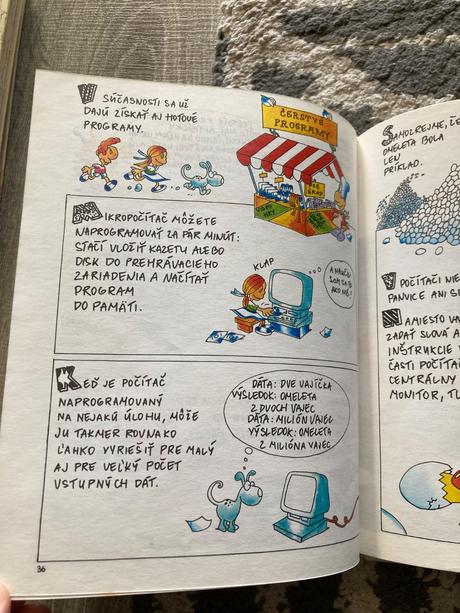 V SÚČASNOSTI SA UŽ
DAJÚ ZÍSKAŤ AJ HOTOVÉ
PROGRAMY.
ČERSTVÉ
PROGRAMY
MIKROPOČÍTAČ MÔŽETE
NAPROGRAMOVAŤ ZA PÁR MINÚT:
STAČÍ VLOŽIŤ KAZETU ALEBO
DISK DO PREHRÁVACIEHO
ZARIADENIA A NAČÍTAŤ
PROGRAM
DO PAMÄTI.
KLAP
KEĎ JE POČÍTAČ
NAPROGRAMOVANÝ
NA NEJAKÚ ÚLOHU, MÔŽE
JU TAKMER ROVNAKO
ĽAHKO VYRIEŠIŤ PRE MALÝ
AJ PRE VEĽKÝ POČET
VSTUPNÝCH DÁT.
DÁTA: DVE VAJÍČKA
VÝSLEDOK: OMELETA
Z DVOCH VAJEC
DÁTA: MILIÓN VAJEC
VÝSLEDOK: OMELETA
Z MILIÓNA VAJEC
36
SAMOZREJME, ŽE
OMELETA BOLA
LEN
PRÍKLAD.
V POČÍTAČI NIE
PANVICE ANI
NAMIESTO
ZADAŤ SLOVÁ A
INŠTRUKCIE
ČASTI POČÍTAČ
CENTRÁLNY
MONITOR,